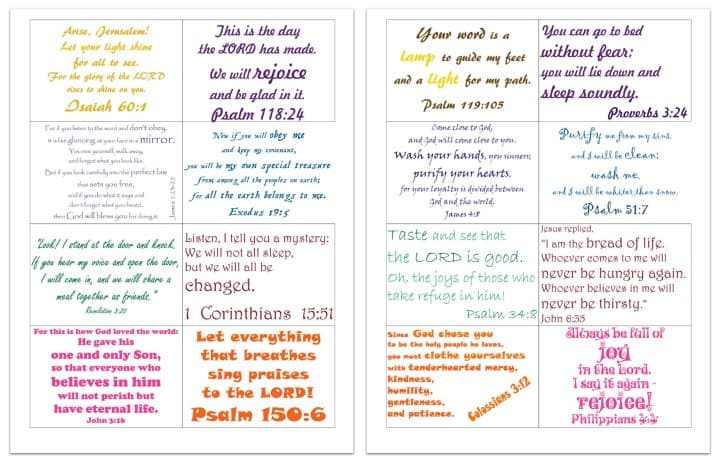 Arise, Jerusalem!
Let your light shine
for all to see.
For the glory of the LORD
rises to shine on you.
Isaiah 60:1
This is the day
the LORD has made.
We will rejoice
and be glad in it.
Psalm 118:24
For if you listen to the word and don't obey,
it is like glancing at your face in a mirror.
You see yourself, walk away,
and forget what you look like.
But if you look carefully into the perfect law
that sets you free,
and if you do what it says and
don't forget what you heard,
then God will bless you for doing it.
James 1:23-25
Now if you will obey me
and keep my covenant,
you will be my own special treasure
from among all the peoples on earth;
for all the earth belongs to me.
Exodus 19:5
"Look! I stand at the door and knock.
If you hear my voice and open the door,
I will come in, and we will share a
meal together as friends."
Revelation 3:20
Listen, I tell you a mystery:
We will not all sleep,
but we will all be
changed.
1 Corinthians 15:51
For this is how God loved the world:
He gave his
one and only Son,
so that everyone who
believes in him
will not perish but
have eternal life.
John 3:16
Let everything
that breathes
sing praises
to the LORD!
Psalm 150:6
Your word is a
lamp to guide my feet
and a light for my path.
Psalm 119:105
You can go to bed
without fear;
you will lie down and
sleep soundly.
Proverbs 3:24
Come close to God,
and God will come close to you.
Wash your hands, you sinners;
purify your hearts,
for your loyalty is divided between
God and the world.
James 4:8
Purify me from my sins,
and I will be clean;
wash me,
and I will be whiter than snow.
Psalm 51:7
Taste and see that
the LORD is good.
Oh, the joys of those who
take refuge in him!
Psalm 34:8
Jesus replied,
"I am the bread of life.
Whoever comes to me will
never be hungry again.
Whoever believes in me will
never be thirsty."
John 6:35
Since God chose you
to be the holy people he loves,
you must clothe yourselves
with tenderhearted mercy,
kindness,
humility,
gentleness,
and patience.
Colossians 3:12
Always be full of
joy
in the Lord.
I say it again -
rejoice!
Philippians 4:4